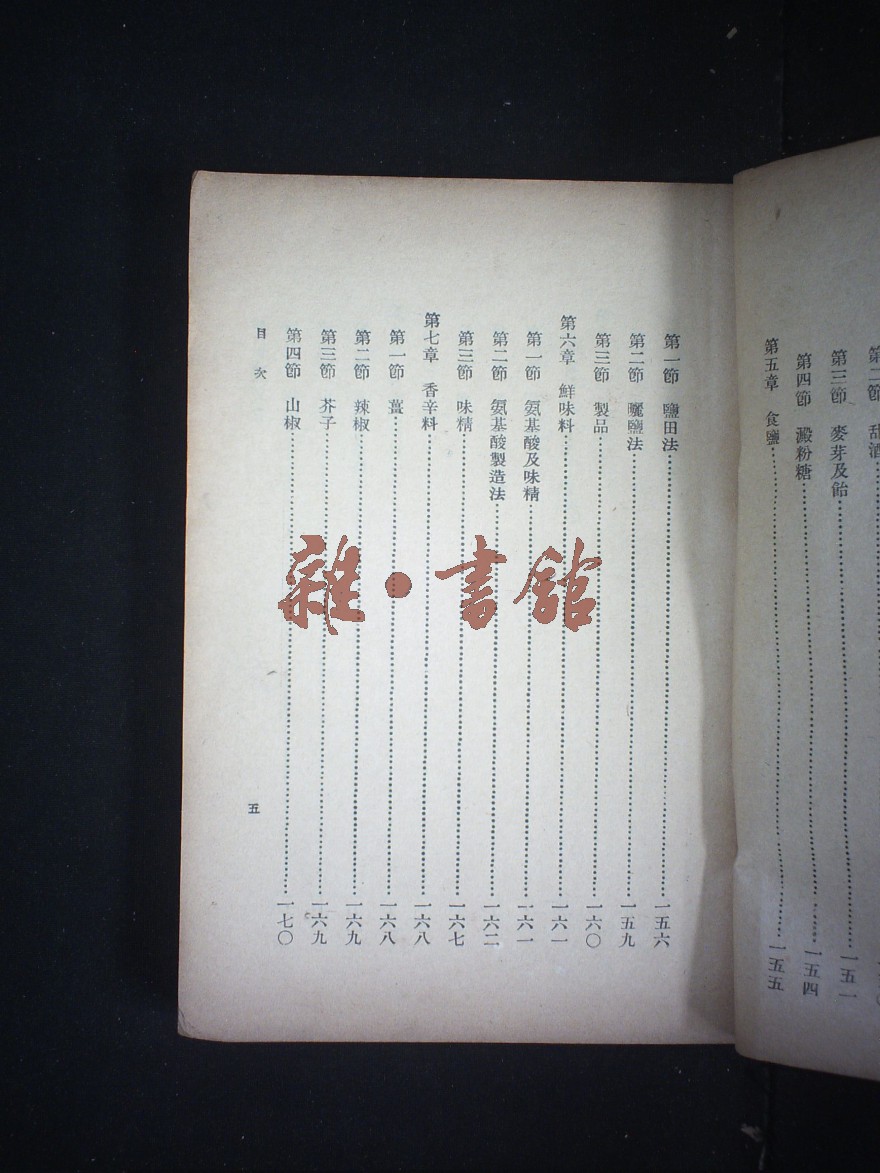 第二節 甜酒
第三節 麥芽及飴……一五一
第四節 澱粉糖……一五四
第五章 食鹽……一五五
第一節 鹽田法……一五六
第二節 曬鹽法……一五九
第三節 製品……一六〇
第六章 鮮味料……一六一
第一節 氨基酸及味精……一六一
第二節 氨基酸製造法……一六二
第三節 味精……一六七
第七章 香辛料……一六八
第一節 薑……一六八
第二節 辣椒……一六九
第三節 芥子……一六九
第四節 山椒……一七〇
目次
五
雜·書館